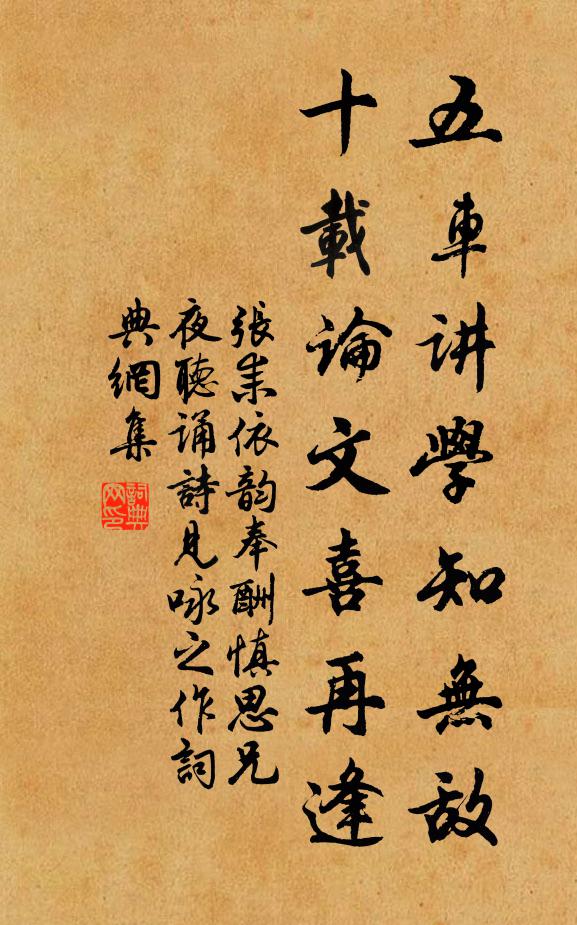 五車讲學知無敌
十載論文喜再逢
張耒依韵奉酬慎思兄
夜聽诵詩見咏之作詞
典網集
詞典網印